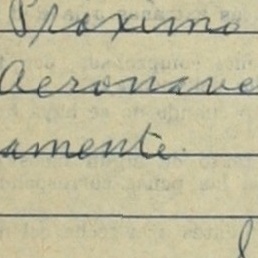 Proximo
Aeronave
amente.